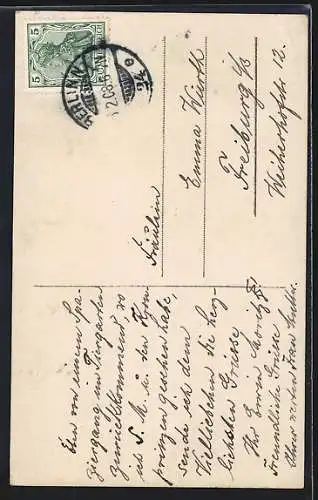 BERLIN
5 5
Fräulein
Emma Kurth
Freiburg i/B
Weiherhofstr 12.
Eben von einem Spa-
ziergang im Tiergarten
zurückkommend, wo
ich S. M. u. den Kron
prinzen gesehen habe,
sende ich dem
Vielliebchen die herz-
lichsten Grüsse
Ihr Erwin
Freundliche Grüsse
Ihrer